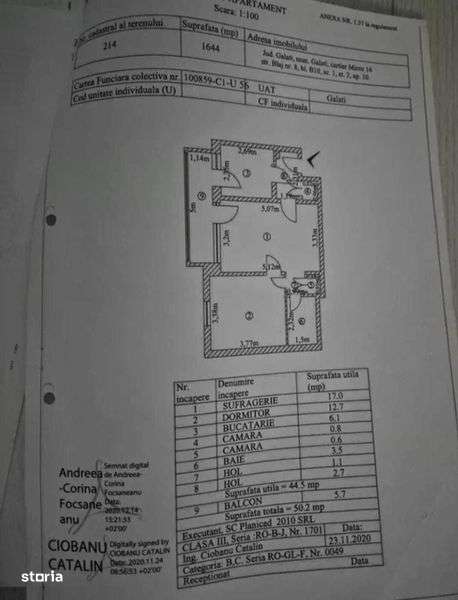 APARTAMENT
Scara: 1:100
ANEXA NR. 1.37 la regulament
Nr. cadastral al terenului
Suprafata (mp)
Adresa imobilului
214
1644
Jud. Galati, mun. Galati, cartier Micro 16
str. Blaj nr. 8, bl. B10, sc. 1, et. 2, ap. 10
Cartea Funciara colectiva nr.
100859-C1-U 56
UAT
Galati
Cod unitate individuala (U)
CF individuala
2,69m
1,14m
3
8
4
9
5m
5,07m
3,2m
1
3,35m
5,12m
7
5
3,38m
2
2,32m
6
3,77m
1,5m
Nr. incapere
Denumire incapere
Suprafata utila (mp)
1 SUFRAGERIE 17.0
2 DORMITOR 12.7
3 BUCATARIE 6.1
4 CAMARA 0.8
5 CAMARA 0.6
6 BAIE 3.5
7 HOL 1.1
8 HOL 2.7
Suprafata utila = 44.5 mp
9 BALCON 5.7
Suprafata totala = 50.2 mp
Executant, SC Planicad 2010 SRL
CLASA III, Seria :RO-B-J, Nr. 1701
Data:
Ing. Ciobanu Catalin
23.11.2020
Categoria: B,C, Seria RO-GL-F, Nr. 0049
Receptionat
Data
Andreea
-Corina
Focsane
anu
Semnat digital
de Andreea-
Corina
Focsaneanu
Data:
2020.12.14
13:21:53
+02'00'
CIOBANU
CATALIN
Digitally signed by
CIOBANU CATALIN
Date: 2020.11.24
08:56:53 +02'00'
storia